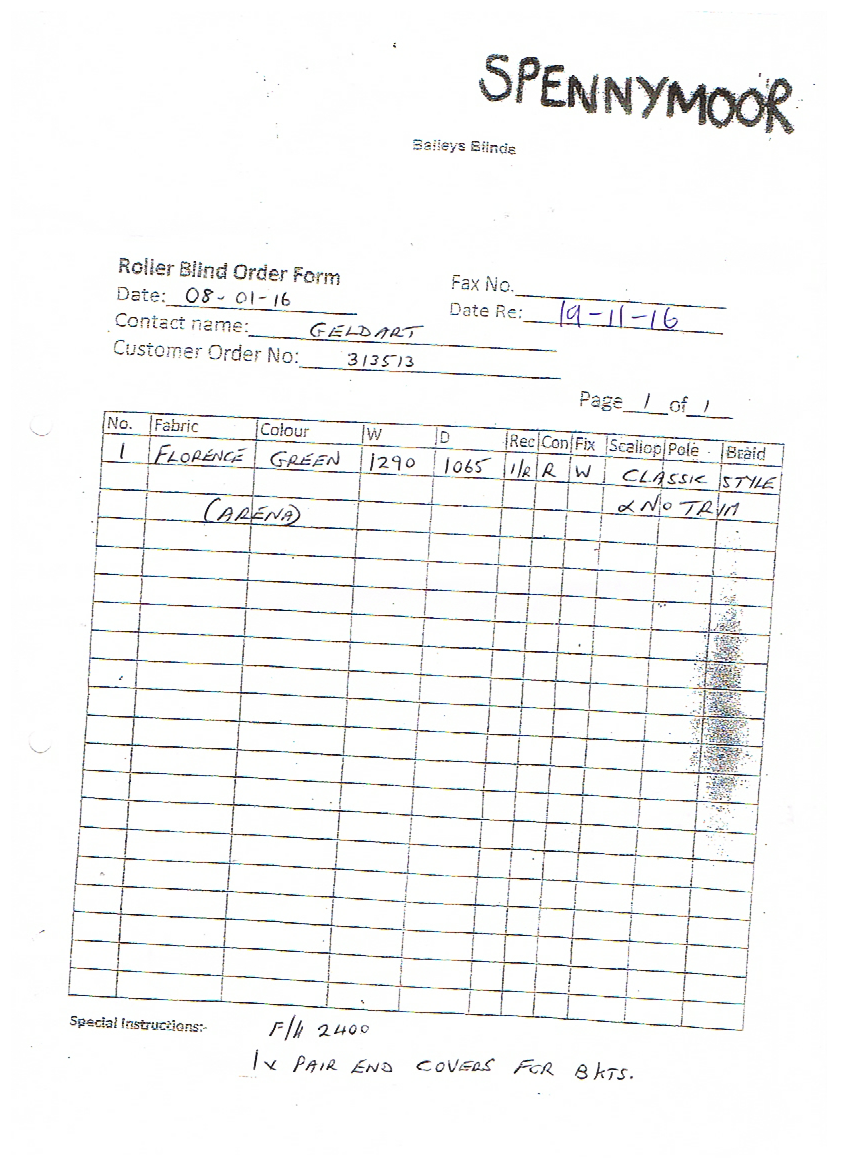 SPENNYMOOR
Baileys Blinds
Roller Blind Order Form
Fax No.
Date: 08-01-16
Date Re: 19-11-16
Contact name: GELDART
Customer Order No: 313513
Page 1 of 1
No. Fabric Colour W D Rec Con Fix Scallop Pole Braid
1 FLORENCE GREEN 1290 1065 1/R R W CLASSIC STYLE
(ARENA) & NO TRIM
Special Instructions:- F/H 2400
1x PAIR END COVERS FOR BKTS.